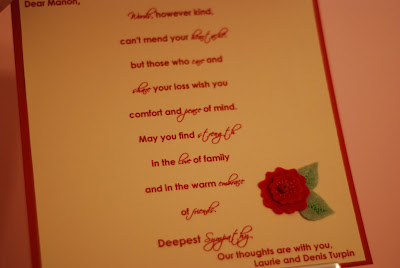 Dear Manon,
Words, however kind,
can't mend your heartache,
but those who care and
share your loss wish you
comfort and peace of mind.
May you find strength
in the love of family
and in the warm embrace
of friends.
Deepest Sympathy.
Our thoughts are with you,
Laurie and Denis Turpin